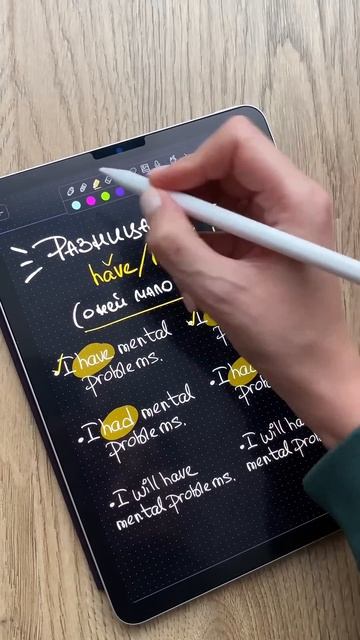 РАЗНИЦА
have/
(окей мало
✓ I have mental
problems.
• I had mental
problems.
• I will have
mental problems.
✓
• I
• I will
mental